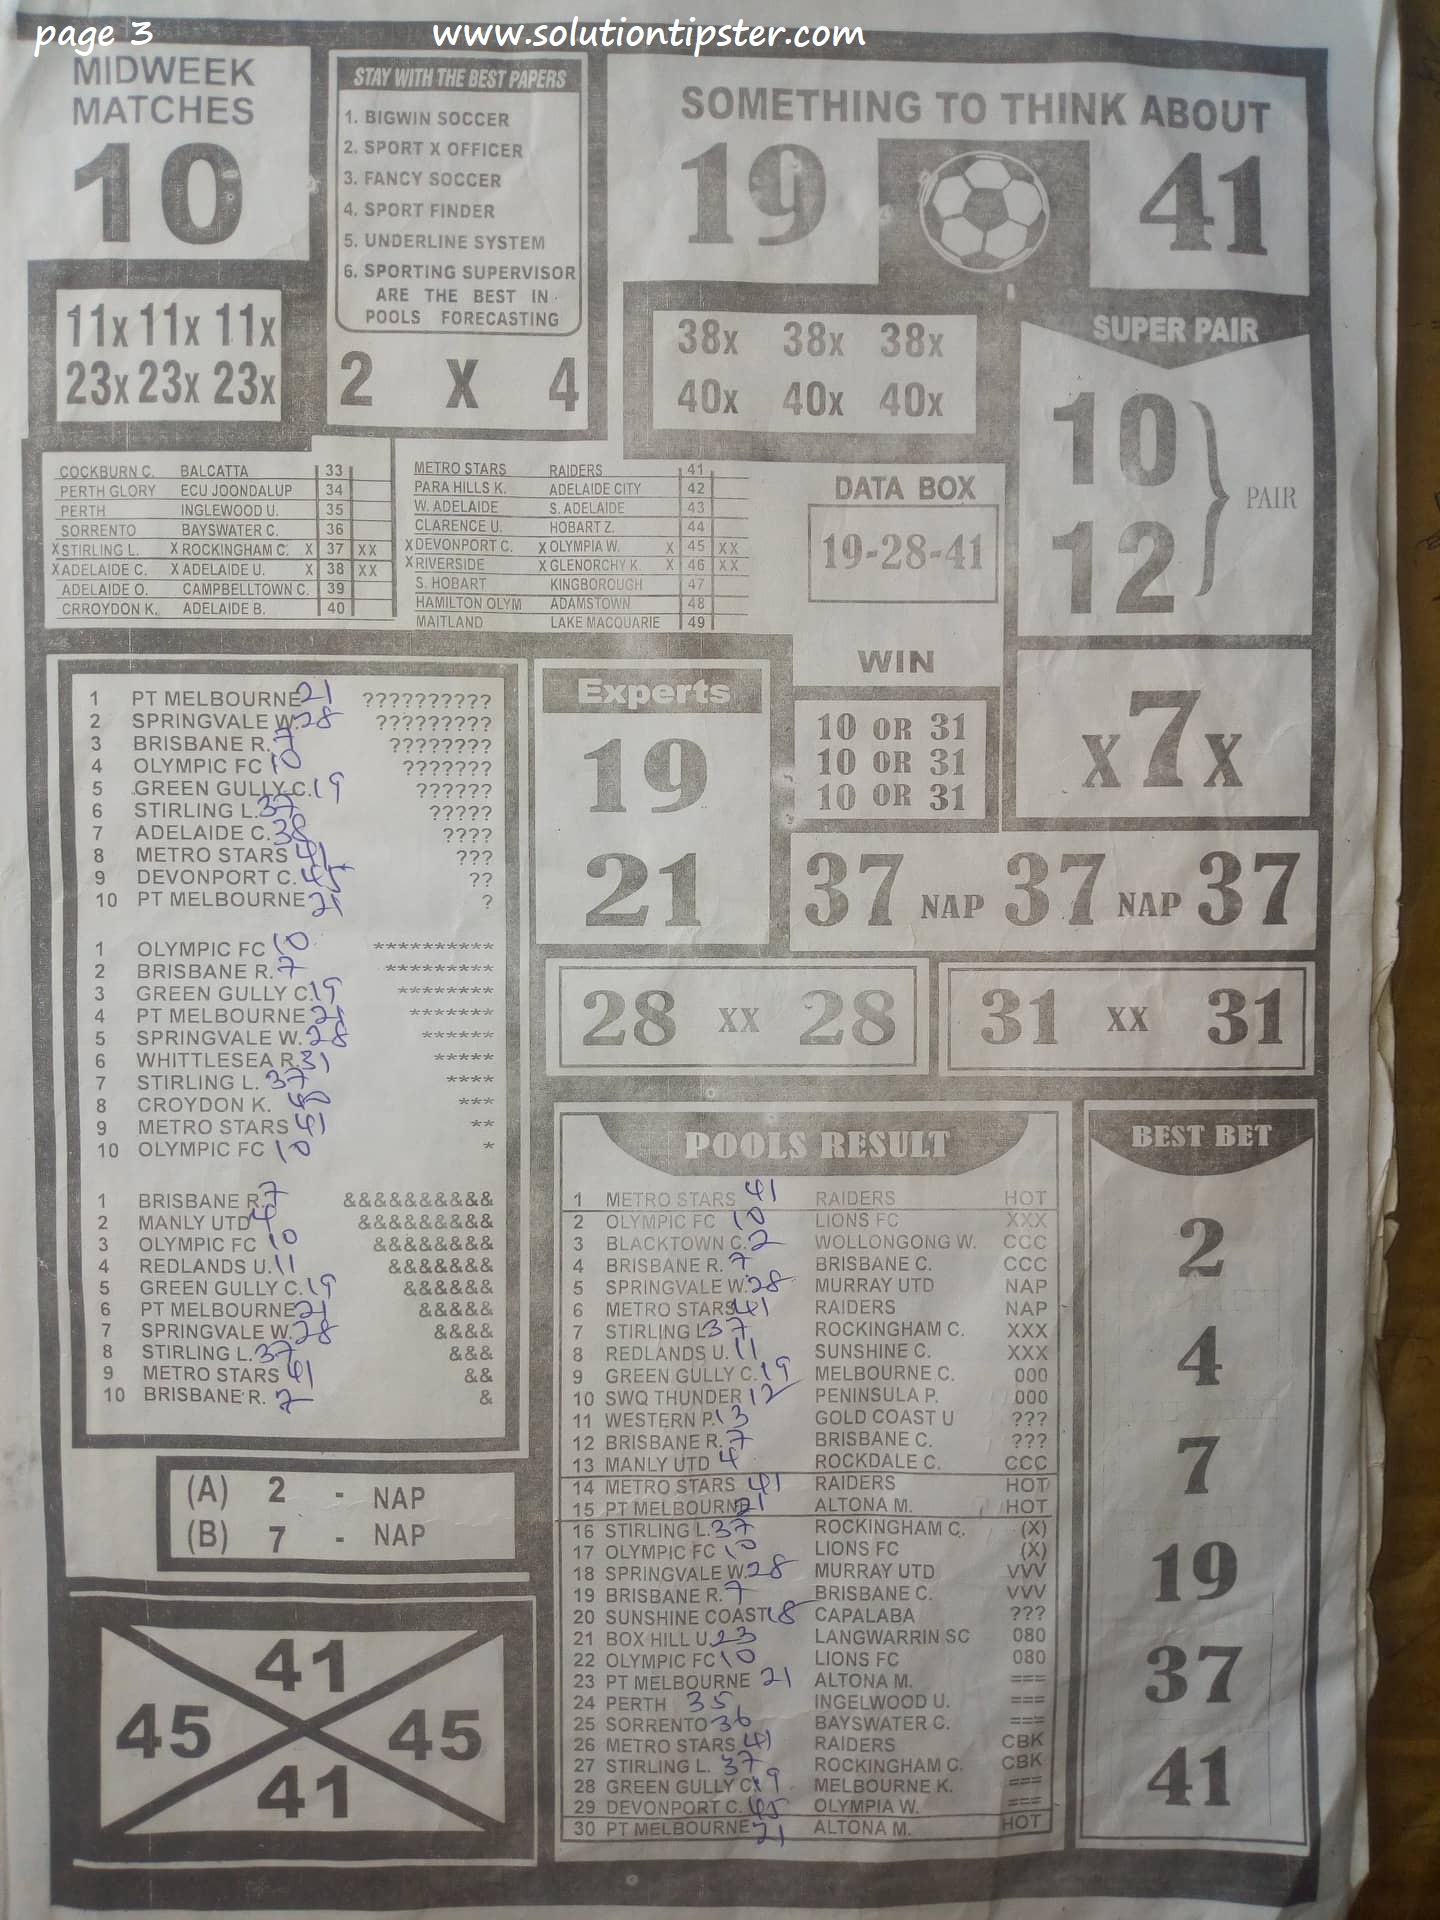 page 3
www.solutiontipster.com
MIDWEEK
MATCHES
10
STAY WITH THE BEST PAPERS
1. BIGWIN SOCCER
2. SPORT X OFFICER
3. FANCY SOCCER
4. SPORT FINDER
5. UNDERLINE SYSTEM
6. SPORTING SUPERVISOR
ARE THE BEST IN
POOLS FORECASTING
SOMETHING TO THINK ABOUT
19 41
11x 11x 11x
23x 23x 23x
2 X 4
38x 38x 38x
40x 40x 40x
SUPER PAIR
10
12
PAIR
COCKBURN C. BALCATTA 33
PERTH GLORY ECU JOONDALUP 34
PERTH INGLEWOOD U. 35
SORRENTO BAYSWATER C. 36
X STIRLING L. X ROCKINGHAM C. X 37 XX
X ADELAIDE C. X ADELAIDE U. X 38 XX
ADELAIDE O. CAMPBELLTOWN C. 39
CRROYDON K. ADELAIDE B. 40
METRO STARS RAIDERS 41
PARA HILLS K. ADELAIDE CITY 42
W. ADELAIDE S. ADELAIDE 43
CLARENCE U. HOBART Z. 44
X DEVONPORT C. X OLYMPIA W. X 45 XX
X RIVERSIDE X GLENORCHY K. X 46 XX
S. HOBART KINGBOROUGH 47
HAMILTON OLYM ADAMSTOWN 48
MAITLAND LAKE MACQUARIE 49
DATA BOX
19-28-41
WIN
10 OR 31
10 OR 31
10 OR 31
X 7 X
1 PT MELBOURNE 21 ??????????
2 SPRINGVALE W. 28 ?????????
3 BRISBANE R. 7 ????????
4 OLYMPIC FC 10 ???????
5 GREEN GULLY C. 19 ??????
6 STIRLING L. 37 ?????
7 ADELAIDE C. 38 ????
8 METRO STARS 41 ???
9 DEVONPORT C. 45 ??
10 PT MELBOURNE 21 ?
1 OLYMPIC FC 10 **********
2 BRISBANE R. 7 *********
3 GREEN GULLY C. 19 ********
4 PT MELBOURNE 21 *******
5 SPRINGVALE W. 28 ******
6 WHITTLESEA R. 31 *****
7 STIRLING L. 37 ****
8 CROYDON K. 40 ***
9 METRO STARS 41 **
10 OLYMPIC FC 10 *
1 BRISBANE R. 7 &&&&&&&&&&
2 MANLY UTD 4 &&&&&&&&&
3 OLYMPIC FC 10 &&&&&&&&
4 REDLANDS U. 11 &&&&&&&
5 GREEN GULLY C. 19 &&&&&&
6 PT MELBOURNE 21 &&&&&
7 SPRINGVALE W. 28 &&&&
8 STIRLING L. 37 &&&
9 METRO STARS 41 &&
10 BRISBANE R. 7 &
Experts
19
21
37 NAP 37 NAP 37
28 XX 28
31 XX 31
POOLS RESULT
1 METRO STARS 41 RAIDERS HOT
2 OLYMPIC FC 10 LIONS FC XXX
3 BLACKTOWN C. 2 WOLLONGONG W. CCC
4 BRISBANE R. 7 BRISBANE C. CCC
5 SPRINGVALE W. 28 MURRAY UTD NAP
6 METRO STARS 41 RAIDERS NAP
7 STIRLING L 37 ROCKINGHAM C. XXX
8 REDLANDS U. 11 SUNSHINE C. XXX
9 GREEN GULLY C. 19 MELBOURNE C. 000
10 SWQ THUNDER 12 PENINSULA P. 000
11 WESTERN P. 13 GOLD COAST U ???
12 BRISBANE R. 7 BRISBANE C. ???
13 MANLY UTD 4 ROCKDALE C. CCC
14 METRO STARS 41 RAIDERS HOT
15 PT MELBOURNE 21 ALTONA M. HOT
16 STIRLING L. 37 ROCKINGHAM C. (X)
17 OLYMPIC FC 10 LIONS FC (X)
18 SPRINGVALE W. 28 MURRAY UTD VVV
19 BRISBANE R. 7 BRISBANE C. VVV
20 SUNSHINE COAST 18 CAPALABA ???
21 BOX HILL U. 23 LANGWARRIN SC 080
22 OLYMPIC FC 10 LIONS FC 080
23 PT MELBOURNE 21 ALTONA M. ===
24 PERTH 35 INGELWOOD U. ===
25 SORRENTO 36 BAYSWATER C. ===
26 METRO STARS 41 RAIDERS CBK
27 STIRLING L. 37 ROCKINGHAM C. CBK
28 GREEN GULLY C. 19 MELBOURNE K. ===
29 DEVONPORT C. 45 OLYMPIA W. ===
30 PT MELBOURNE 21 ALTONA M. HOT
BEST BET
2
4
7
19
37
41
(A) 2 - NAP
(B) 7 - NAP
41
45 45
41